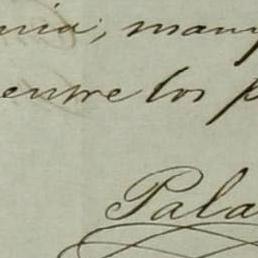 nia, many
entre los p
Pala